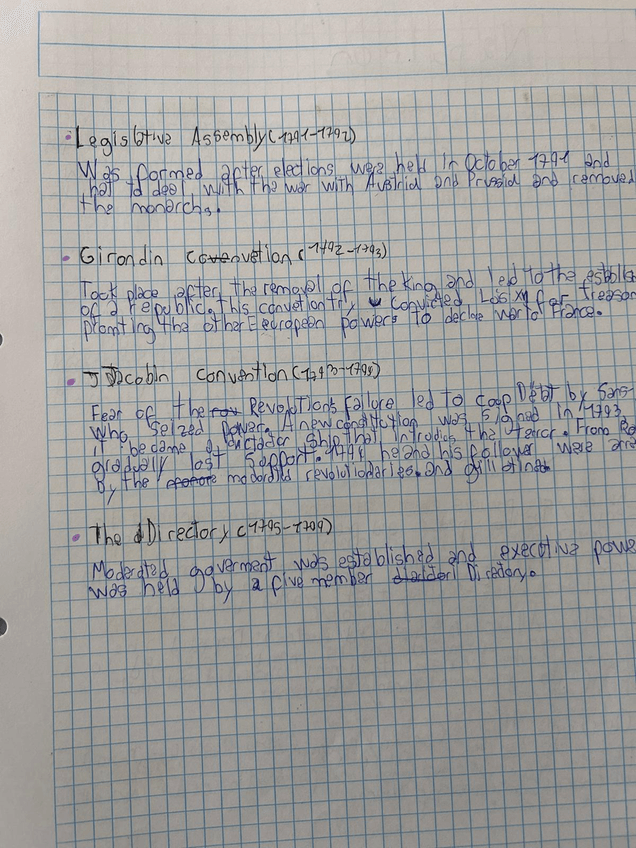 Legislative Assembly (1791-1792)
Was formed after elections were held in October 1791 and
hat to deal with the war with Austria and Prussia and removed
the monarchs.
Girondin Convetion (1792-1793)
Took place after the removal of the king and led to the establ
of a republic. this convetion try convicted Luis XVI for treason
promting the other European powers to declare war to France.
Jacobin convention (1793-1795)
Fear of the Revolution's failure led to coup by Sans
who seized power. A new condition was signed in 1793
it became a dictator ship that introdus the terror. From
gradually lost support. 1794 he and his follower were
By, the moderates revolutionaries and
The Directory (1795-1799)
Moderated goverment was established and executive powe
was held by a five member Directory.